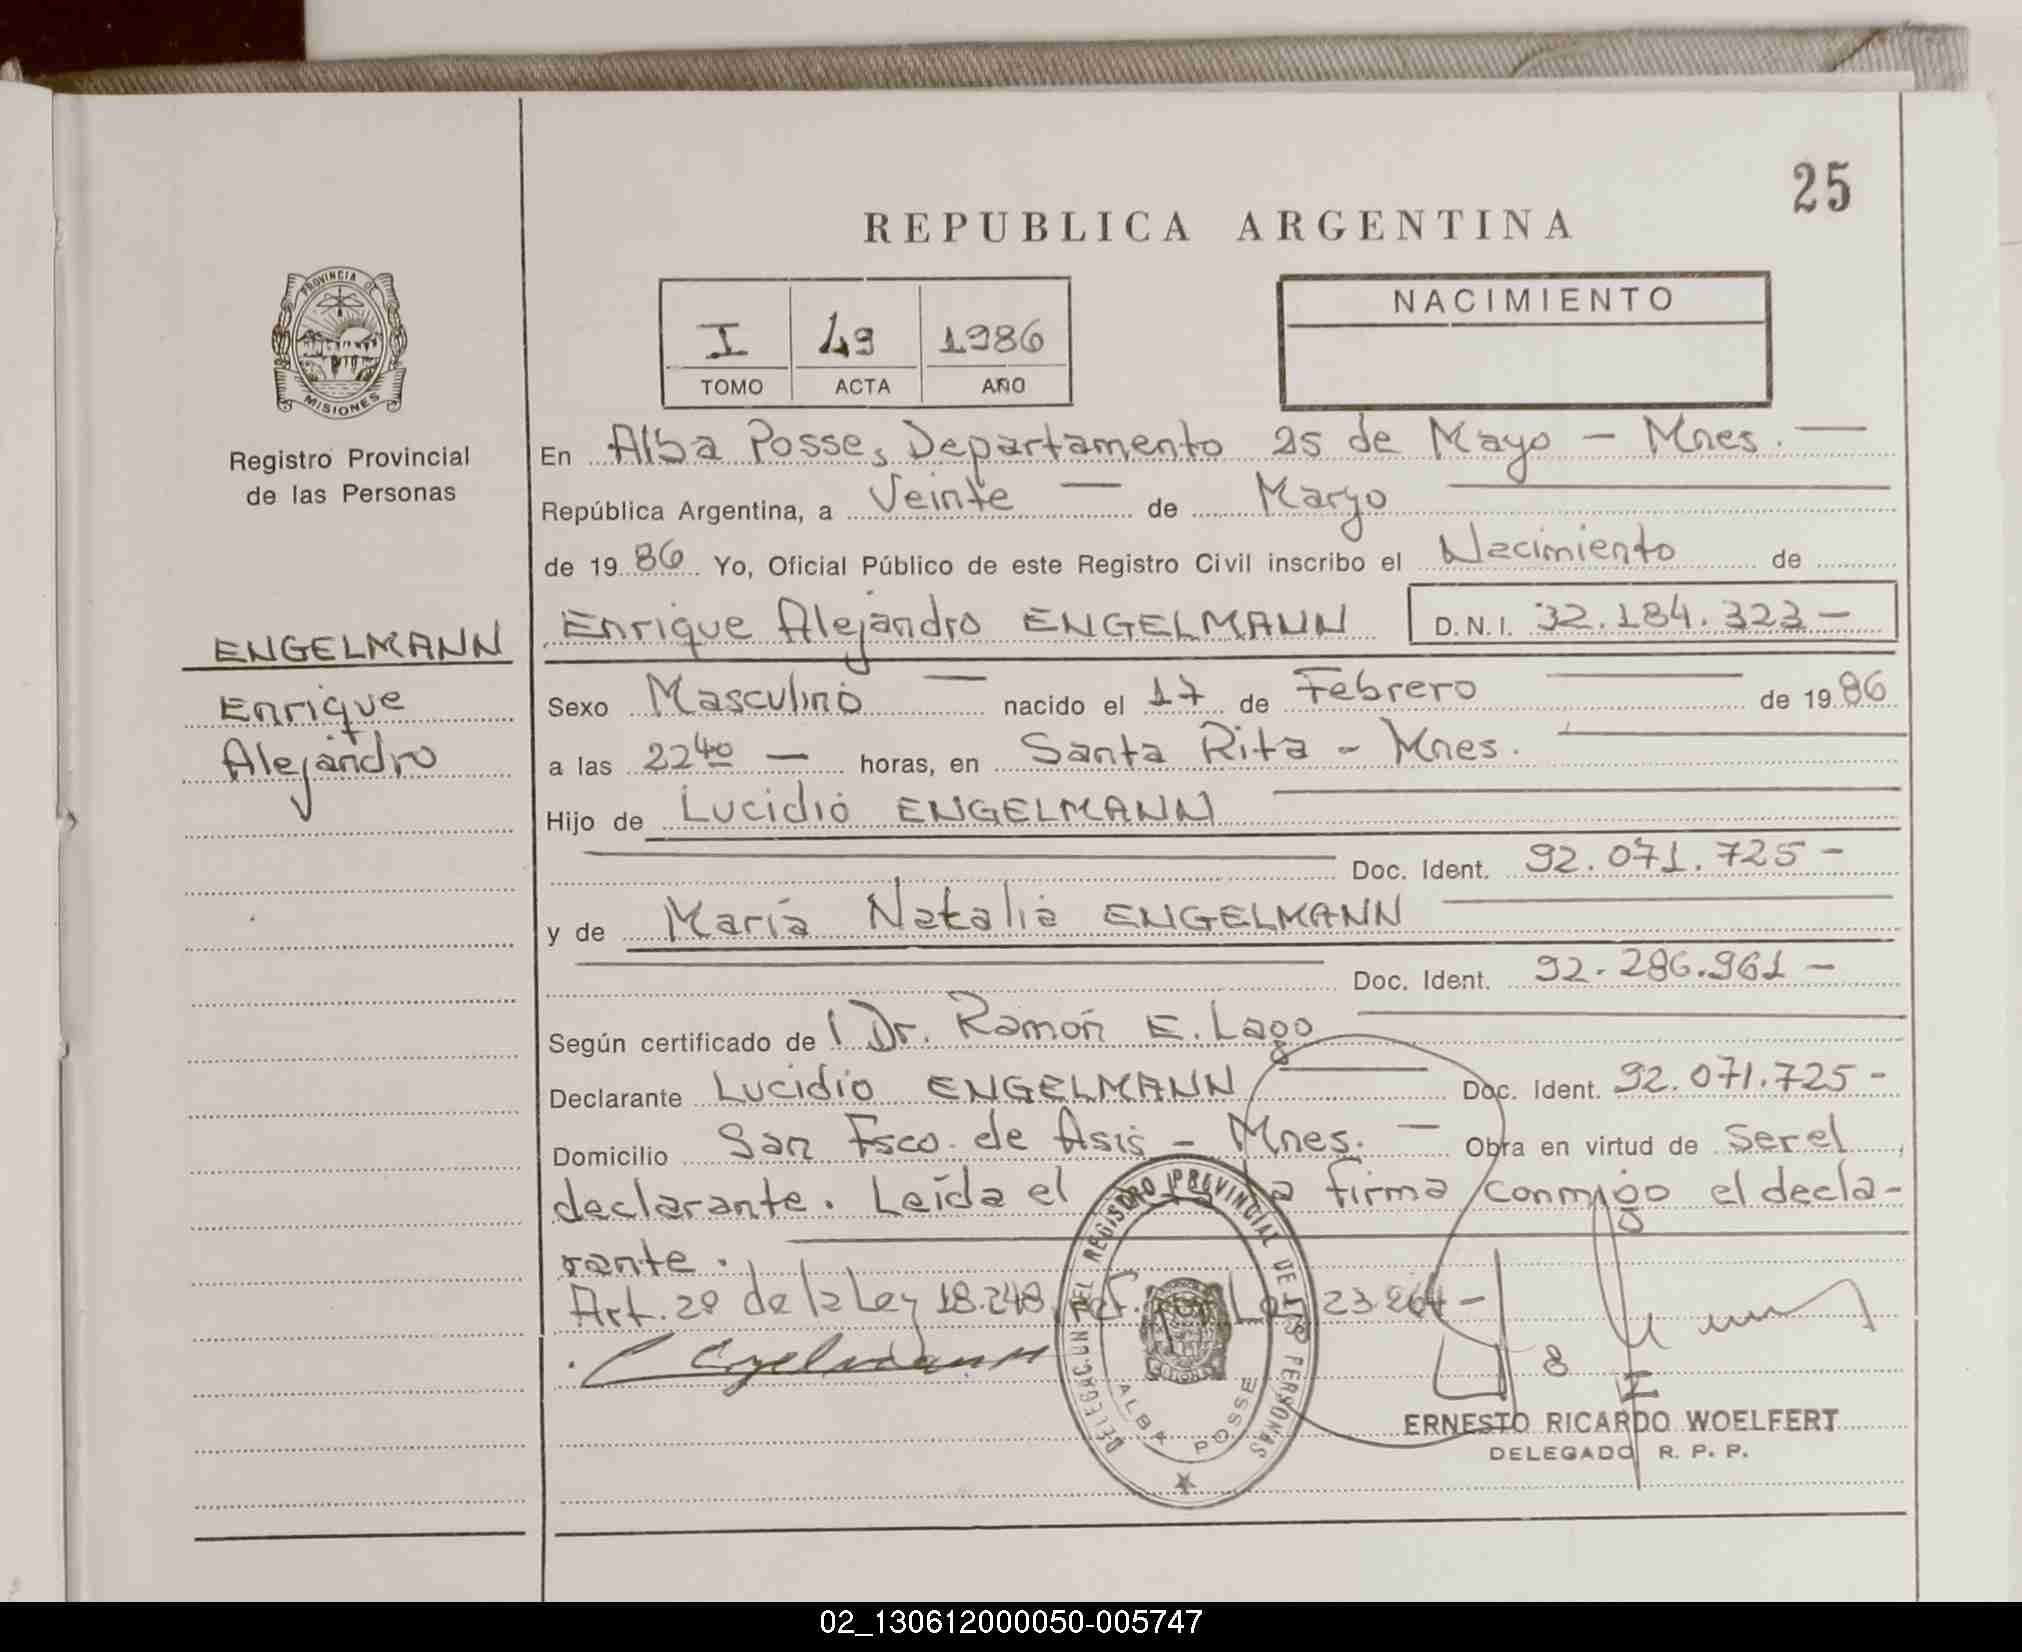 25
REPUBLICA ARGENTINA
PROVINCIA DE
MISIONES
I 49 1986
TOMO ACTA AÑO
NACIMIENTO
Registro Provincial
de las Personas
En Alba Posse, Departamento 25 de Mayo - Mnes. —
República Argentina, a Veinte — de Marzo
de 1986 Yo, Oficial Público de este Registro Civil inscribo el Nacimiento de
Enrique Alejandro ENGELMANN D.N.I. 32.184.323 -
ENGELMANN
Enrique
Alejandro
Sexo Masculino — nacido el 17 de Febrero — de 1986
a las 22 40 — horas, en Santa Rita - Mnes.
Hijo de Lucidio ENGELMANN
Doc. Ident. 92.071.725 -
y de María Natalia ENGELMANN
Doc. Ident. 92.286.961 -
Según certificado de Dr. Ramón E. Lago
Declarante Lucidio ENGELMANN Doc. Ident. 92.071.725 -
Domicilio San Fsco. de Asis - Mnes. — Obra en virtud de Ser el
declarante. Leída el firma conmigo el decla-
rante.
Art. 2º de la Ley 18.248, 23.264 -
Engelmann
DELEGACION DEL REGISTRO PROVINCIAL DE LAS PERSONAS
ALBA POSSE
ERNESTO RICARDO WOELFERT
DELEGADO R. P. P.
02_130612000050-005747